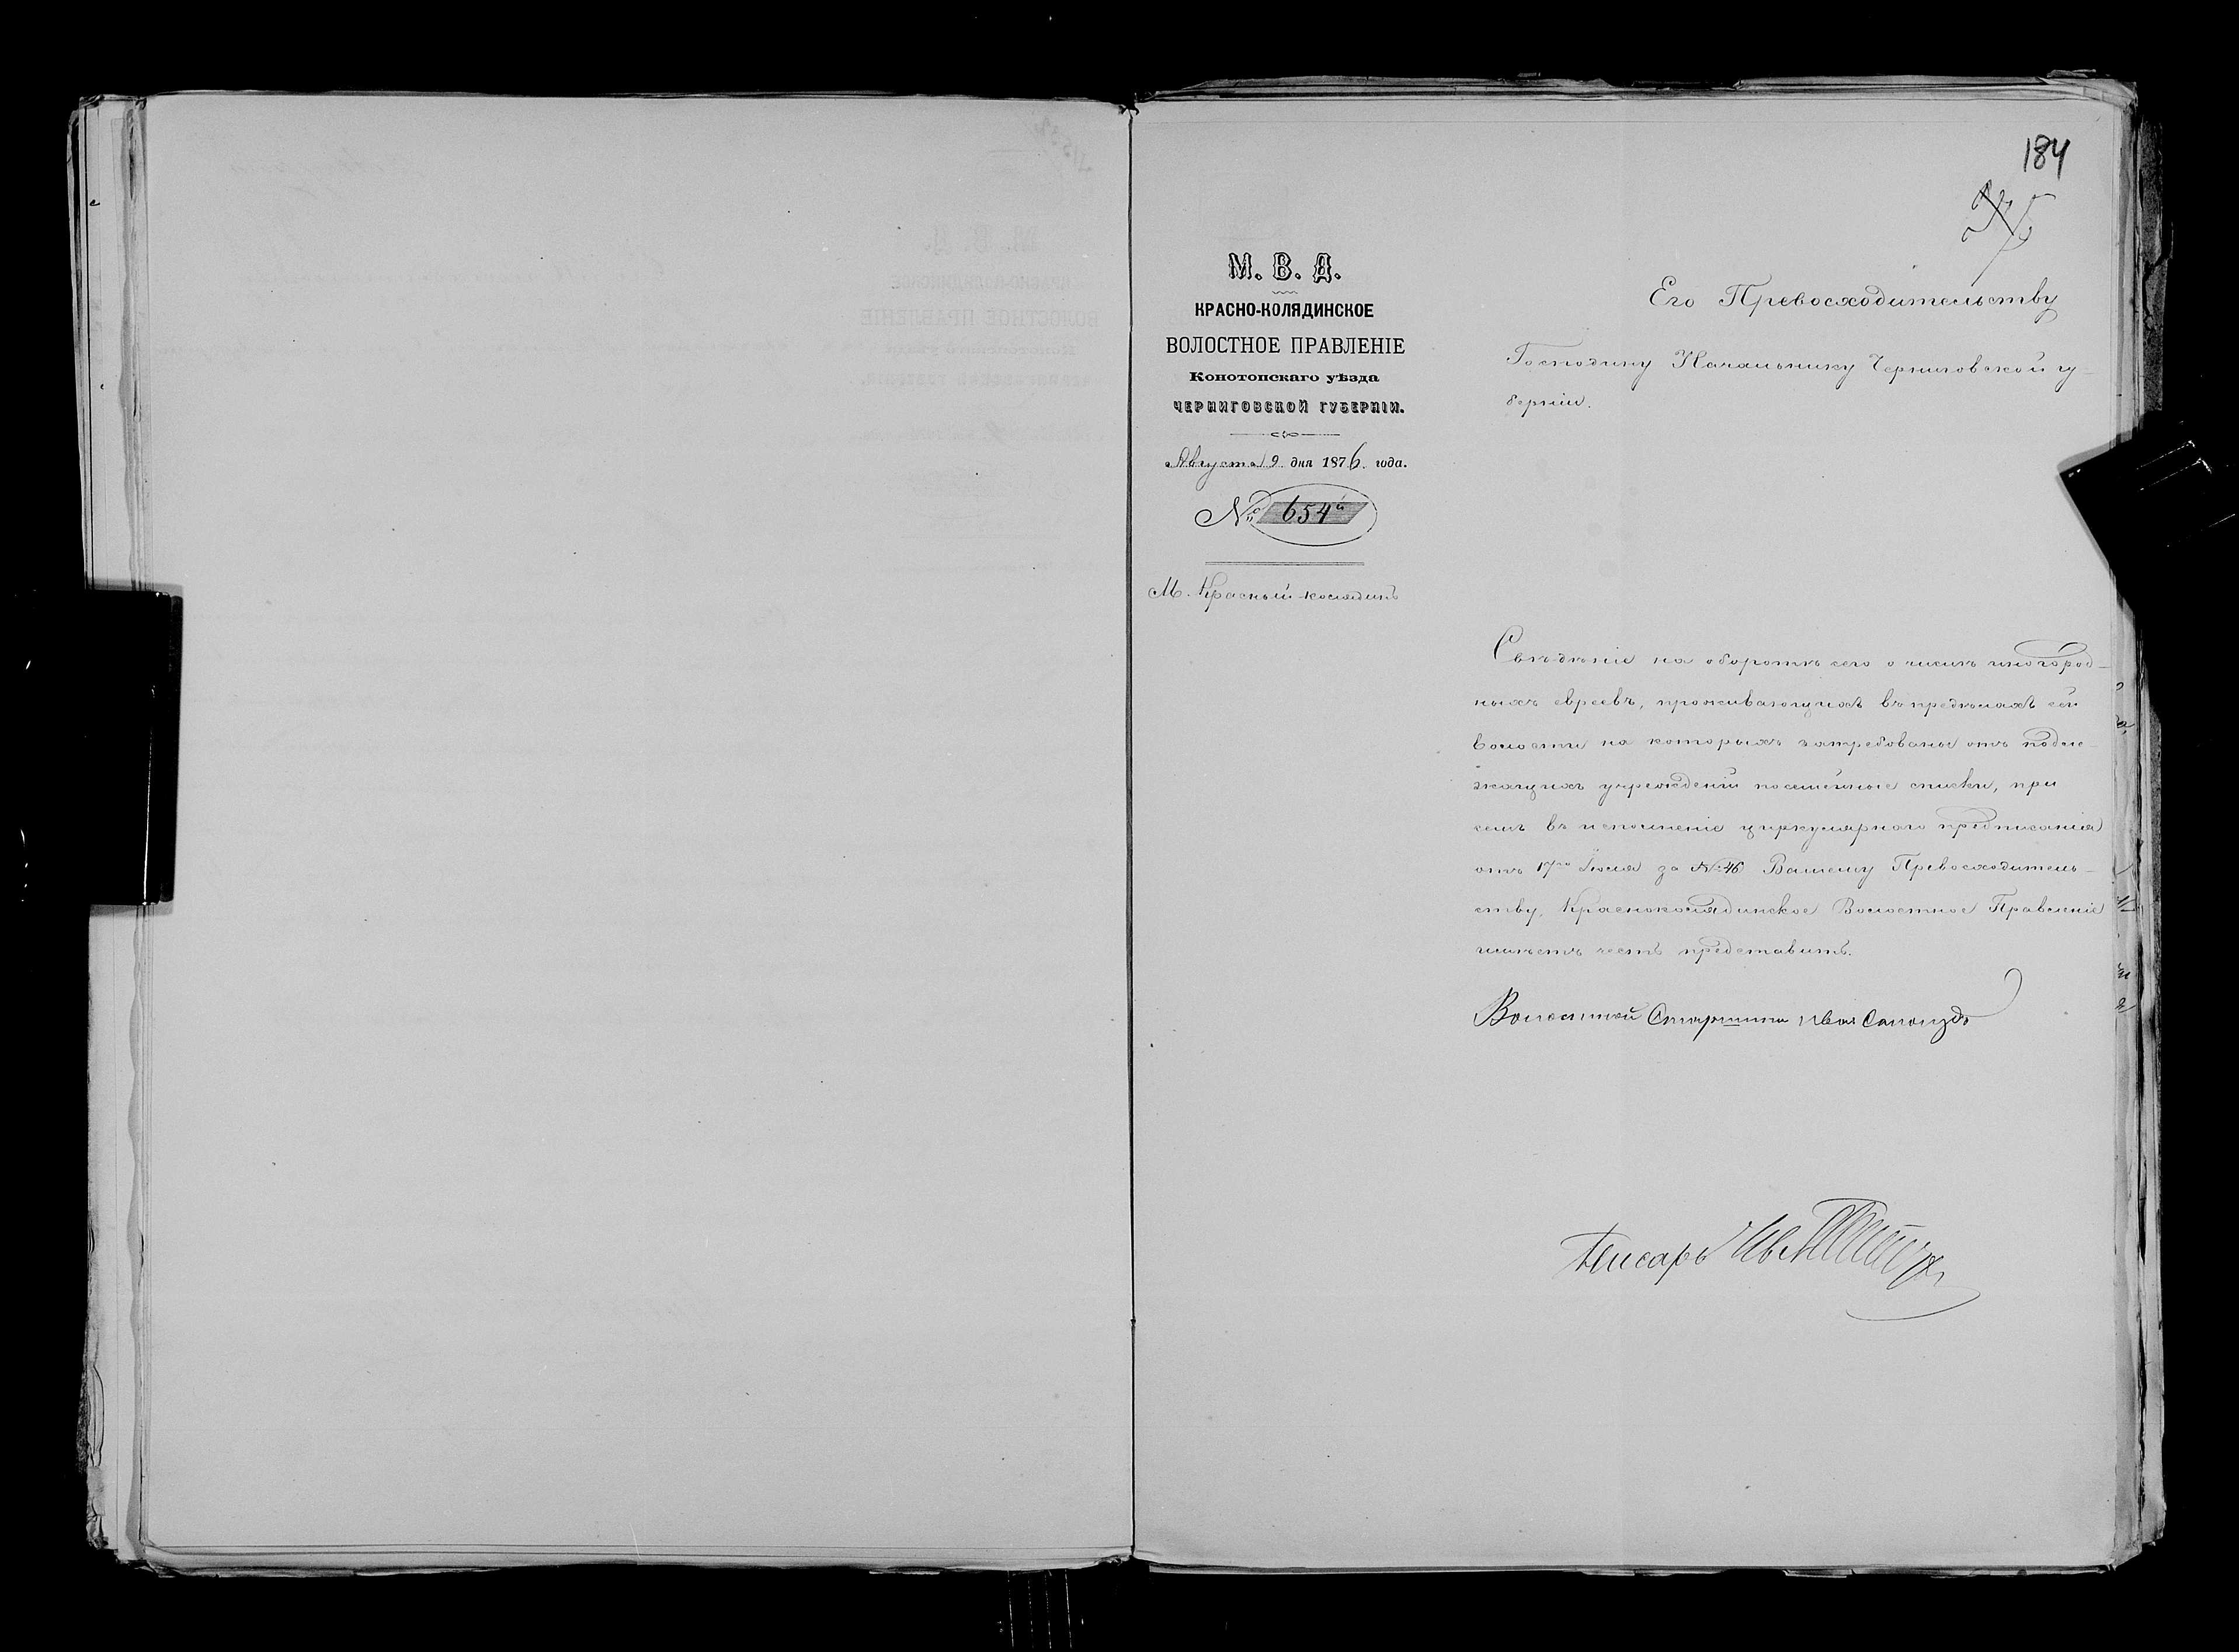 184
М. В. Д.
КРАСНО-КОЛЯДИНСКОЕ
ВОЛОСТНОЕ ПРАВЛЕНІЕ
Конотопскаго уѣзда
ЧЕРНИГОВСКОЙ ГУБЕРНІИ.
Августа 9 дня 1876 года.
№ 654
М. Красный-колядинъ
Его Превосходительству
Господину Начальнику Черниговской гу-
берніи.
Свѣдѣніе на оборотѣ сего о числѣ иногород-
ныхъ евреевъ, проживающихъ въ предѣлахъ сей
волости на которыхъ затребованы отъ подле-
жащихъ учрежденій посемейные списки, при
семъ въ исполненіе циркулярнаго предписанія
отъ 17го Іюля за № 46 Вашему Превосходитель-
ству, Красноколядинское Волостное Правленіе
имѣетъ честь представить.
Волостной Старшина Иван
Писарь